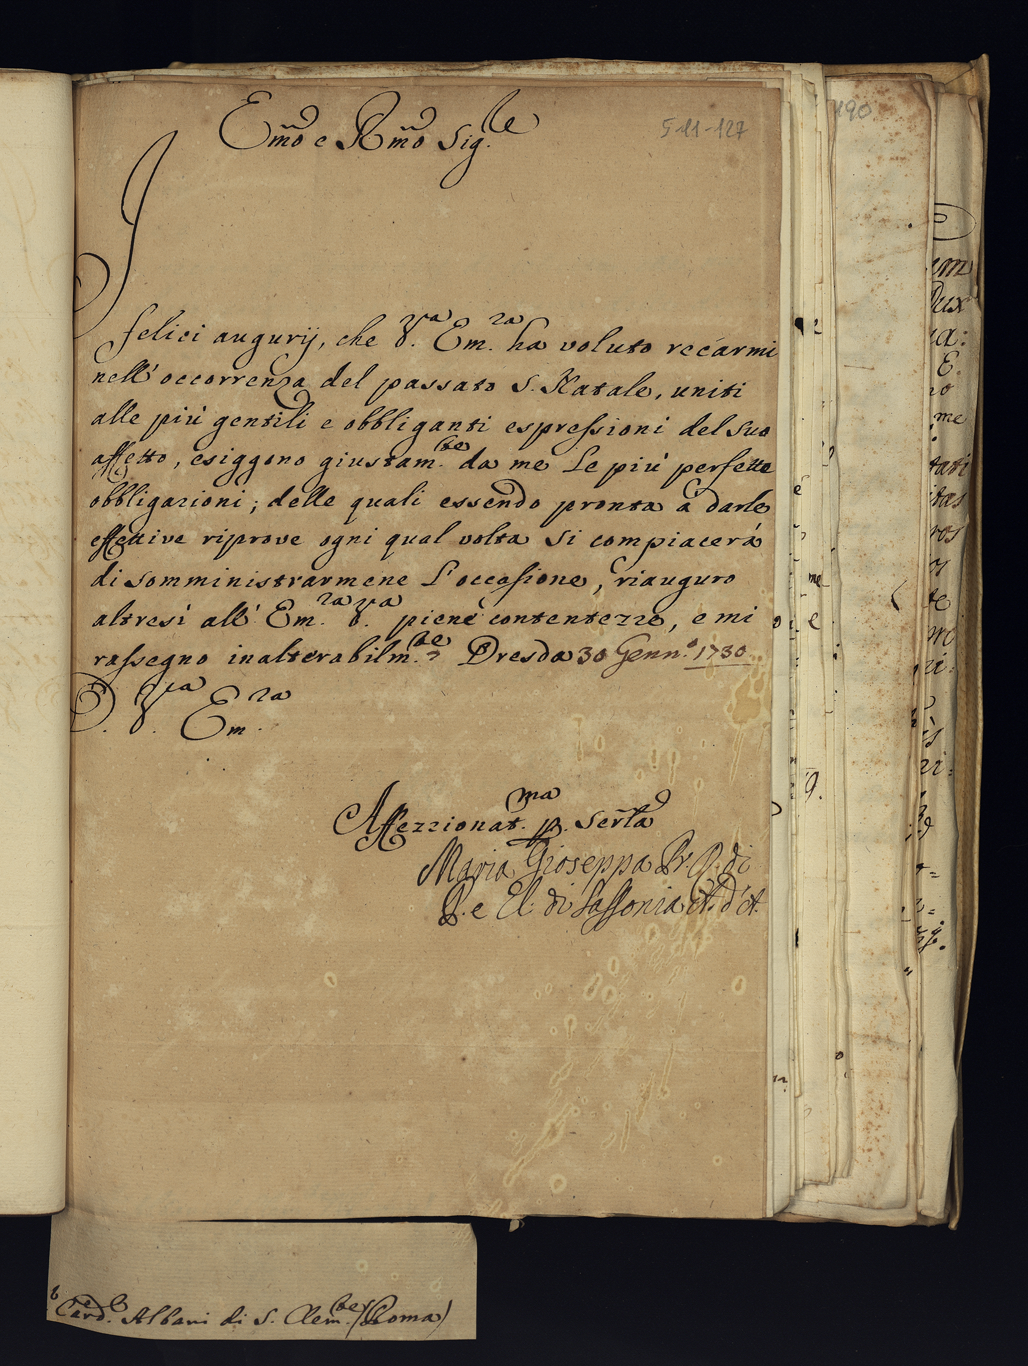 Em̃o e R̃mo Sig.re
5-11-127
I felici augurij, che V.ra Em.za ha voluto recarmi
nell' occorrenza del passato S. Natale, uniti
alle più gentili e obbliganti espressioni del suo
affetto, esiggono giustam.te da me le più perfette
obbligazioni; delle quali essendo pronta à darle
effettive riprove ogni qual volta si compiacerà
di somministrarmene l'occasione, riauguro
altresì all' Em.za V.ra piene contentezze, e mi
rassegno inalterabilm.te Dresda 30 Genn.o 1730.
D. V.ra Em.za
Affezzionat.ma p. Serla
Maria Gioseppa R. di
P. e El. di Sassonia A. d'A.
Card.le Albani di S. Clem.te (Roma)
190